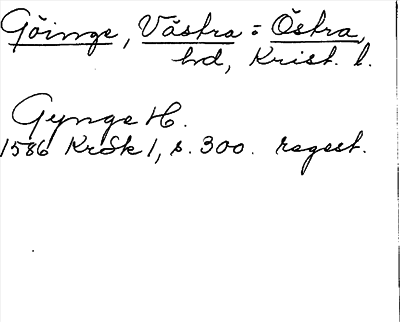 Göinge, Västra = Östra,
hd, Krist. l.
Gynge H.
1586 KrSk 1, s. 300. regest.